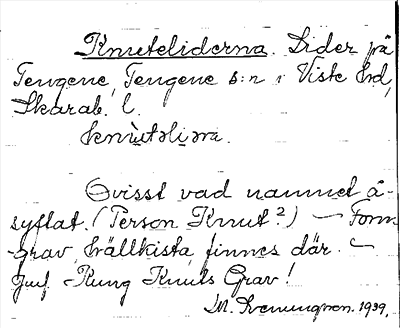 Knuteliderna. Lider på
Tengene, Tengene s:n i Viste hd,
Skarab. l.
knùtəliəṛna.
Ovisst vad namnet å-
syftat. (Person Knut?) — Forn-
grav, hällkista finnes där. —
Jmf. Kung Knuts Grav!
M. Svenungson. 1939.